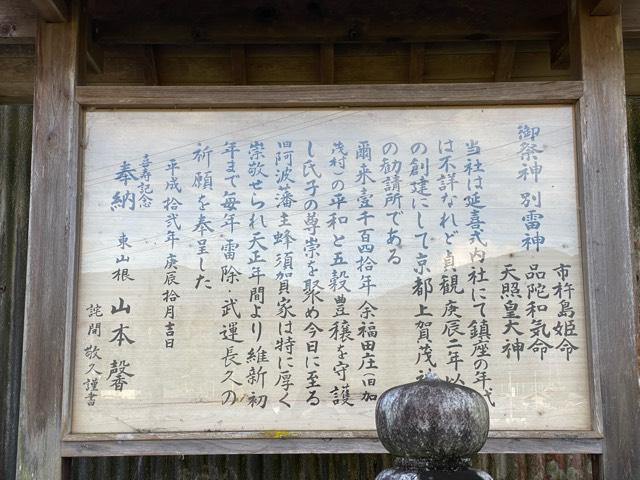 御祭神 別雷神
市杵島姫命
品陀和気命
天照皇大神
当社は延喜式内社にて鎮座の年代
は不詳なれど貞観庚辰二年以
の創建にして京都上賀茂
の勧請所である
爾来壹千百四拾年余福田庄(旧加
茂村)の平和と五穀豊穣を守護
し氏子の尊崇を聚め今日に至る
旧阿波藩主蜂須賀家は特に厚く
崇敬せられ天正年間より維新初
年まで毎年雷除・武運長久の
祈願を奉呈した
平成拾弐年 庚辰拾月吉日
喜寿記念
奉納 東山根 山本 馨
詫間 敬久謹書